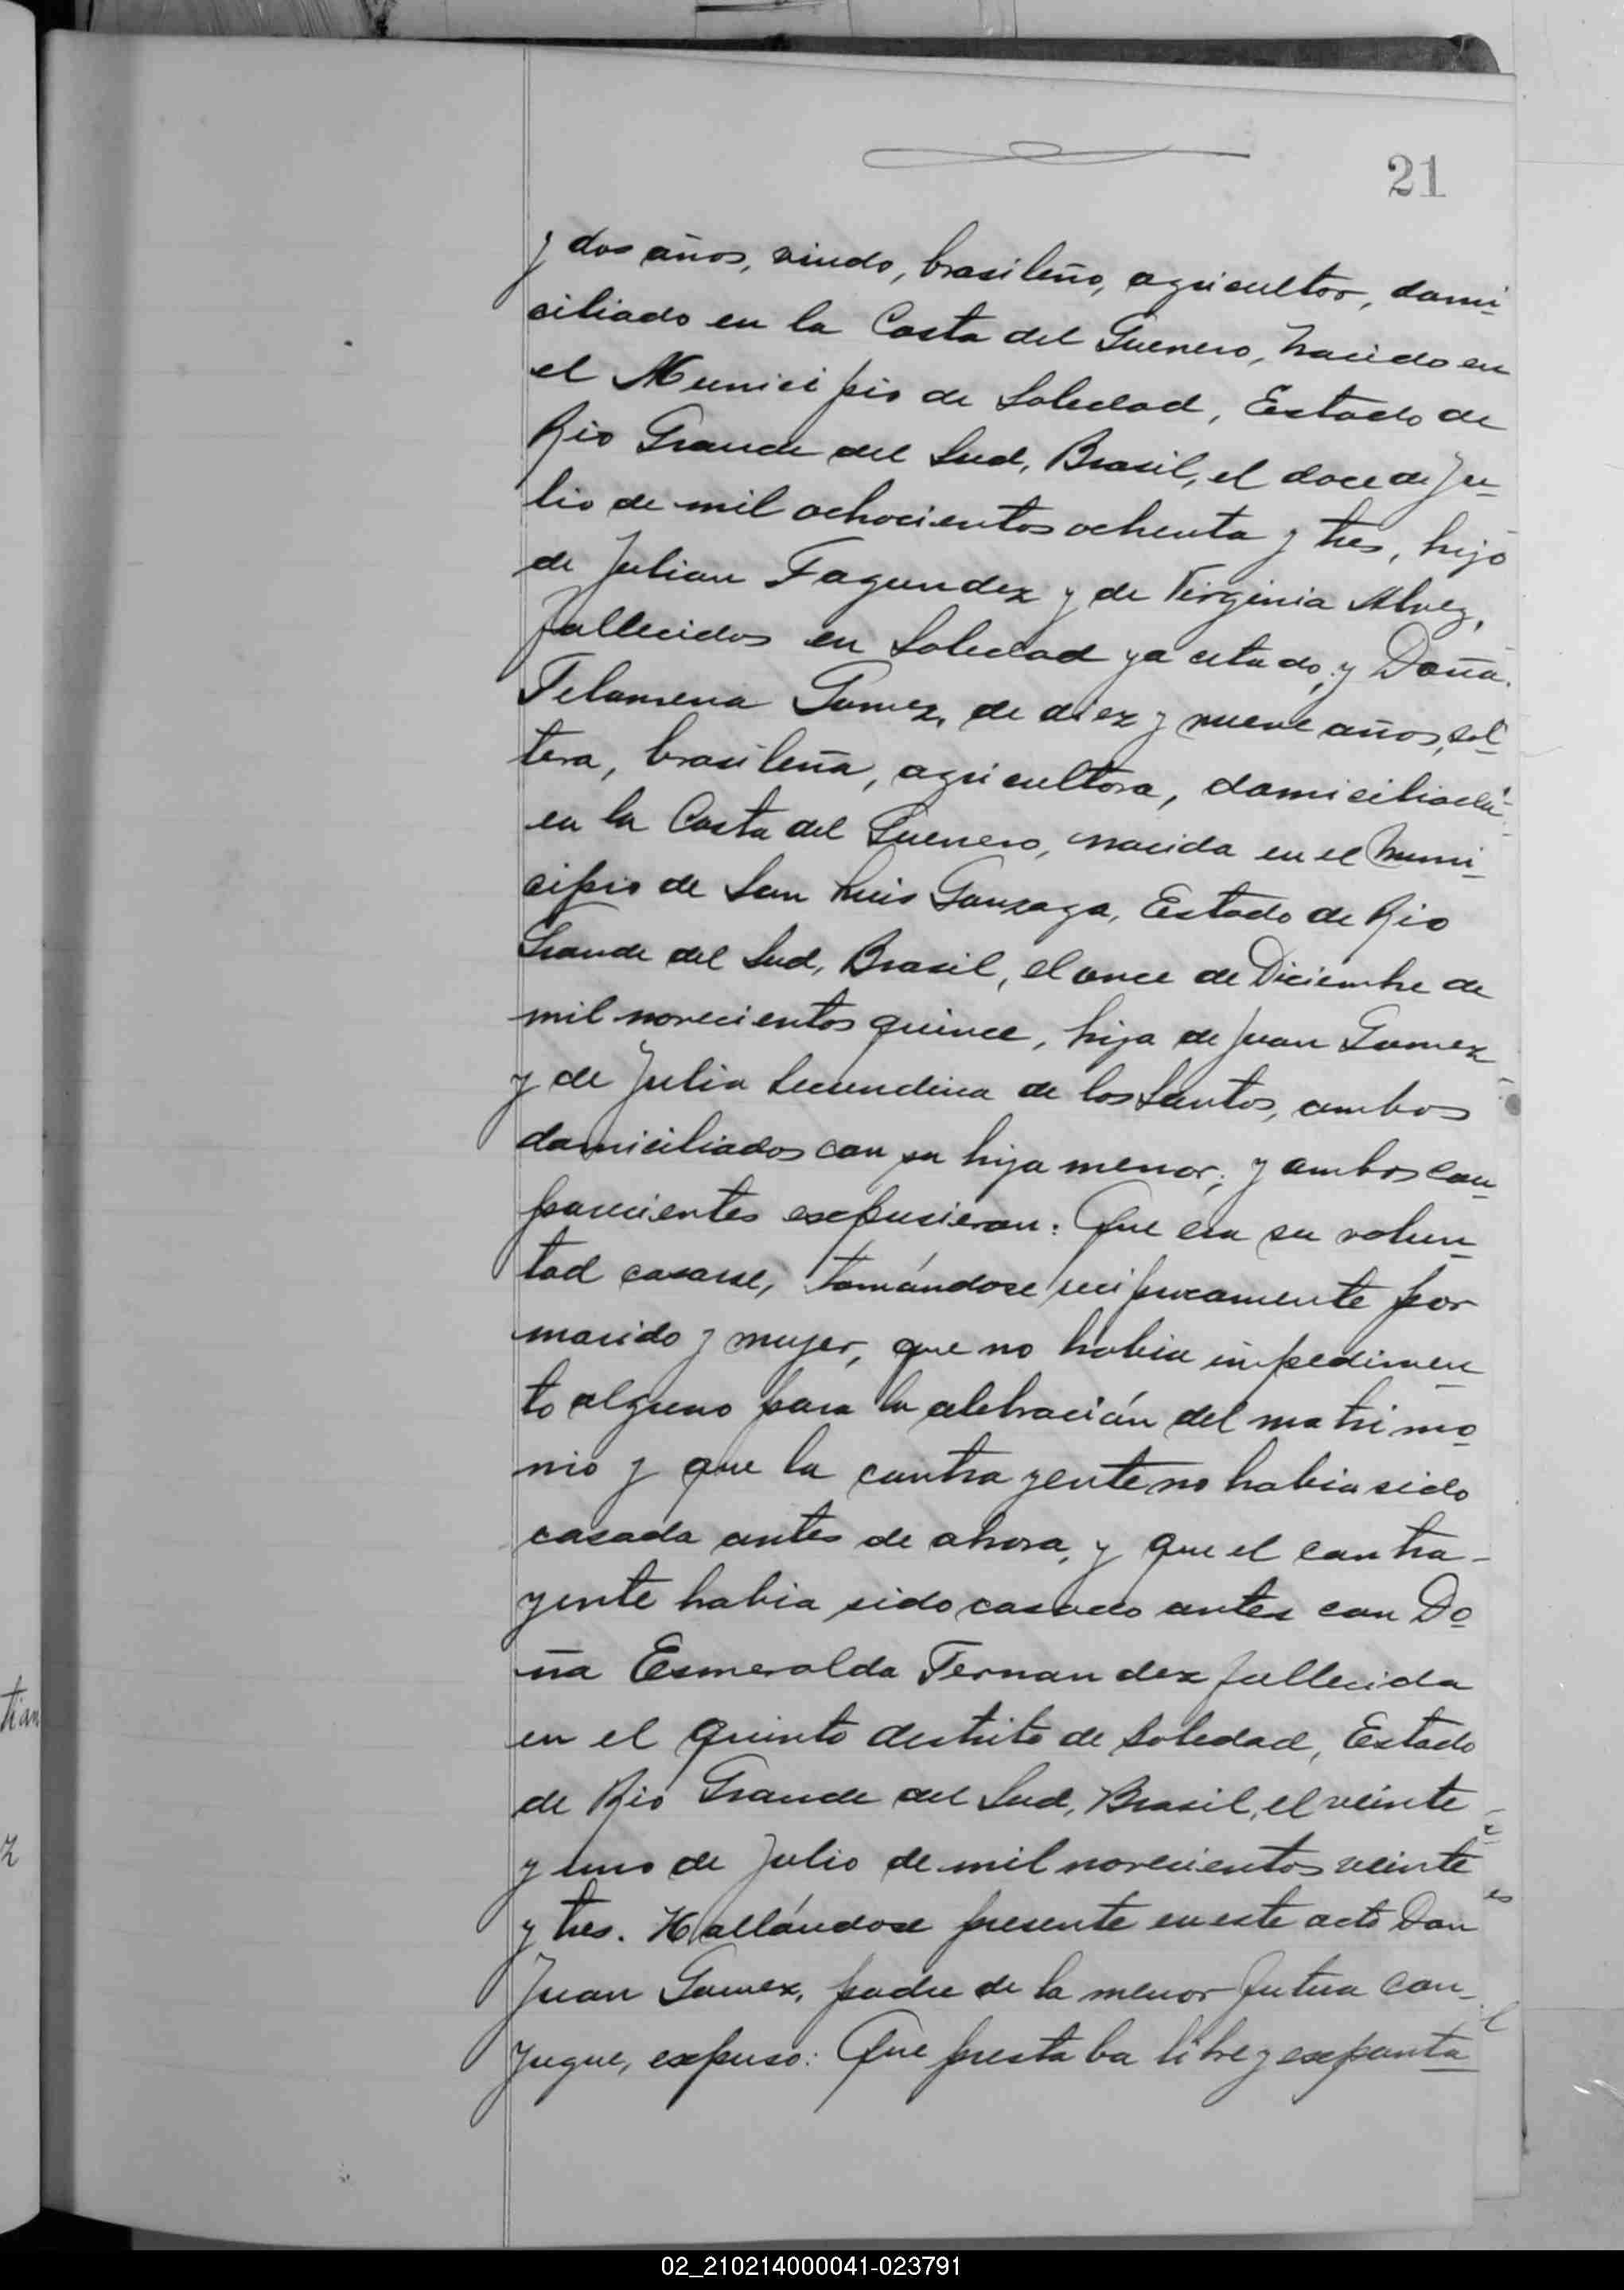 21
y dos años, viudo, brasileño, agricultor, domi-
ciliado en la Costa del Guerrero, nacido en
el Municipio de Soledad, Estado de
Rio Grande del Sud, Brasil, el doce de Ju-
lio de mil ochocientos ochenta y tres, hijo
de Julian Fagundez y de Virginia Alvez,
fallecidos en Soledad ya citado; y Doña
Felomena Gomez, de diez y nueve años, sol-
tera, brasileña, agricultora, domiciliada
en la Costa del Guerrero, nacida en el Muni-
cipio de San Luis Gonzaga, Estado de Rio
Grande del Sud, Brasil, el once de Diciembre de
mil novecientos quince, hija de Juan Gomez
y de Julia Secundina de los Santos, ambos
domiciliados con su hija menor; y ambos com-
parecientes expusieron: Que era su volun-
tad casarse, tomándose reciprocamente por
marido y mujer, que no habia impedimen-
to alguno para la celebración del matrimo-
nio y que la contrayente no habia sido
casada antes de ahora, y que el contra-
yente habia sido casado antes con Do-
ña Esmeralda Fernandez fallecida
en el quinto distrito de Soledad, Estado
de Rio Grande del Sud, Brasil, el veinte
y uno de Julio de mil novecientos veinte
y tres. Hallándose presente en este acto Don
Juan Gomez, padre de la menor futura con-
yugue, expuso: Que prestaba libre y esponta-
02_210214000041-023791